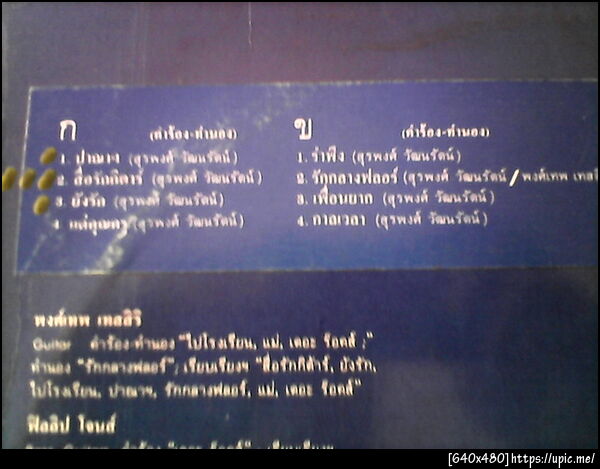 ก (คำร้อง-ทำนอง)
1. ปาฌาฯ (สุรพงศ์ วัฒนรัตน์)
2. สื่อรักกีตาร์ (สุรพงศ์ วัฒนรัตน์)
3. ยังรัก (สุรพงศ์ วัฒนรัตน์)
4. (สุรพงศ์ วัฒนรัตน์)
ข (คำร้อง-ทำนอง)
1. รำพึง (สุรพงศ์ วัฒนรัตน์)
2. รักกลางฟลอร์ (สุรพงศ์ วัฒนรัตน์ / พงศ์เทพ เทส
3. เพื่อนยาก (สุรพงศ์ วัฒนรัตน์)
4. กาลเวลา (สุรพงศ์ วัฒนรัตน์)
พงศ์เทพ เทสสิริ
Guitar คำร้อง-ทำนอง "ไปโรงเรียน, แป, เดอะ ร็อคส์ ;"
ทำนอง "รักกลางฟลอร์"; เรียบเรียงฯ "สื่อรักกีต้าร์, ยังรัก,
ไปโรงเรียน, ปาฌาฯ, รักกลางฟลอร์, แป, เดอะ ร็อคส์"
ฟิลลิป โจนส์
[640x480]https://upic.me/